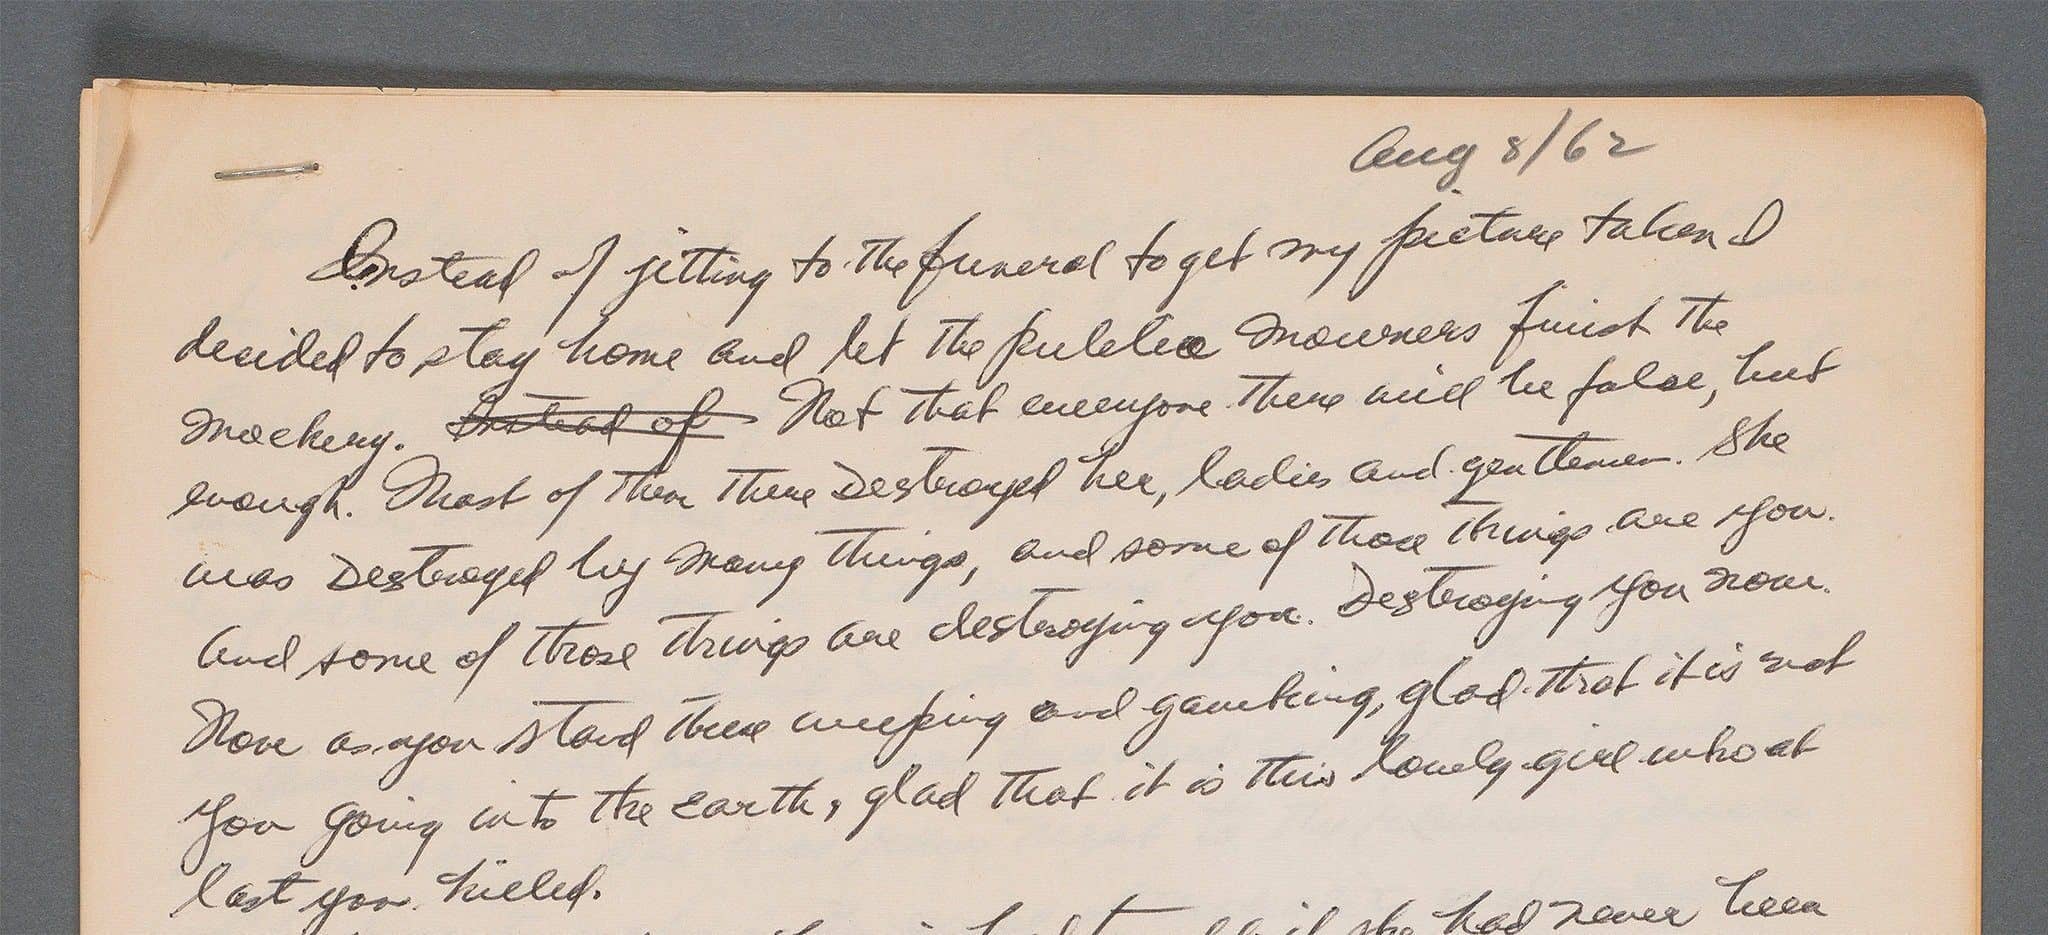 Aug 8/62
Instead of jetting to the funeral to get my picture taken I
decided to stay home and let the public mourners finish the
mockery. Instead of Not that everyone there will be false, but
enough. Most of them there Destroyed her, ladies and gentlemen. She
was Destroyed by many things, and some of those things are you.
And some of those things are destroying you. Destroying you now.
Now as you stand there weeping and gawking, glad that it is not
you going into the earth, glad that it is this lonely girl who at
last you killed.
she had never been